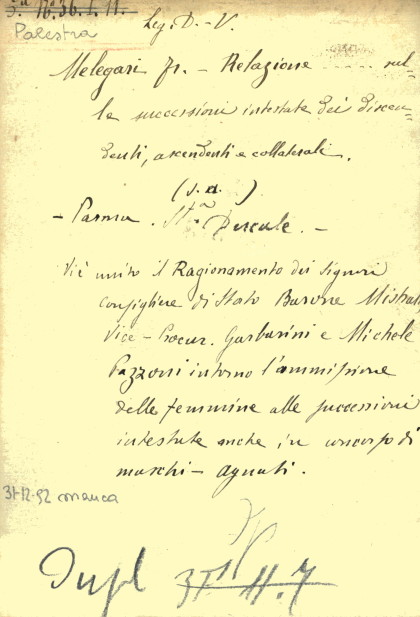 5.a 16.36.I.11.
Palestra
Leg. D.-V.
Melegari Fr. - Relazione ..... sul-
le successioni intestate dei discen-
denti, ascendenti e collaterali.
(s. a.)
- Parma. St.a Ducale. -
Vi è unito il Ragionamento dei Signori
Consigliere di Stato Barone Mistrali,
Vice-Procur. Garbarini e Michele
Pazzoni intorno l'ammissione
delle femmine alle successioni
intestate anche in concorso di
maschi-agnati.
31-12-92 manca
Dupl 37 11.7